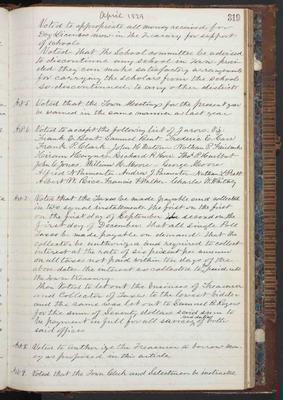 April 1879
319
Voted to appropriate all money received for
Dog Licenses now in the Treasury for support
of schools
Voted that the School committee be advised
to discontinue any school in town provi-
ded they can make satisfactory arrangements
for carrying the scholars from the schools
so discontinued to any other district.
Art 5 Voted that the Town Meetings for the present year
be warned in the same manner as last year
Art 6 Voted to accept the following list of Jurors. Viz:
Frank E. Bent Samuel Kent Frederic E. Carr
Frank P. Clark John H. Nathan P. Fairbanks
Hiram Richard H. Thos P. Hurlbut
John C. Jones William H. Moore George Moore
Alfred N. Parmenter Andrew J. Parmenter Nathan L. Pratt
Albert W. Rice Francis F. Walker Charles O. Whitney
Art 7 Voted that the Taxes be made payable and collected
in two equal installments the first on the first
on the first day of September second on the
first day of December that all single Poll
taxes be made payable on demand. that the
collector be authorized and required to collect
interest at the rate of six percent per annum
on all taxes not paid within ten days of the
above dates. the interest so collected to be paid into
the town treasury.
Then Voted to let out the business of Treasurer
and Collector of Taxes to the lowest bidder
and the same was let out to Samuel B. Rogers
for the sum of Seventy dollars said sum to
be payment in full for all services and duties of both
said offices
Art 8. Voted to authorize the Treasurer to borrow mon-
ey as proposed in this article
Art 9. Voted that the Town Clerk and Selectmen be instructed